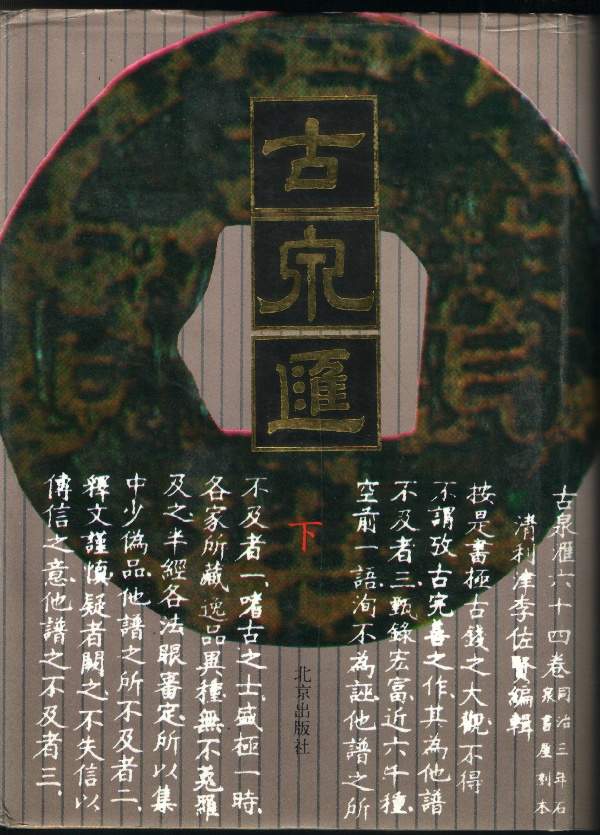 古泉匯
下
古泉匯六十四卷
同治三年石
泉書屋刻本
清利津李佐賢編輯
按是書極古錢之大觀、不得
不謂攷古完善之作、其為他譜
不及者三、甄錄宏富、近六千種、
空前一語洵不為誣、他譜之所
不及者一、嗜古之士、盛極一時、
各家所藏逸品異種、無不克羅
及之、半經各法眼審定、所以集
中少偽品、他譜之所不及者二、
釋文謹慎、疑者闕之、不失信以
傳信之意、他譜之不及者三、
北京出版社